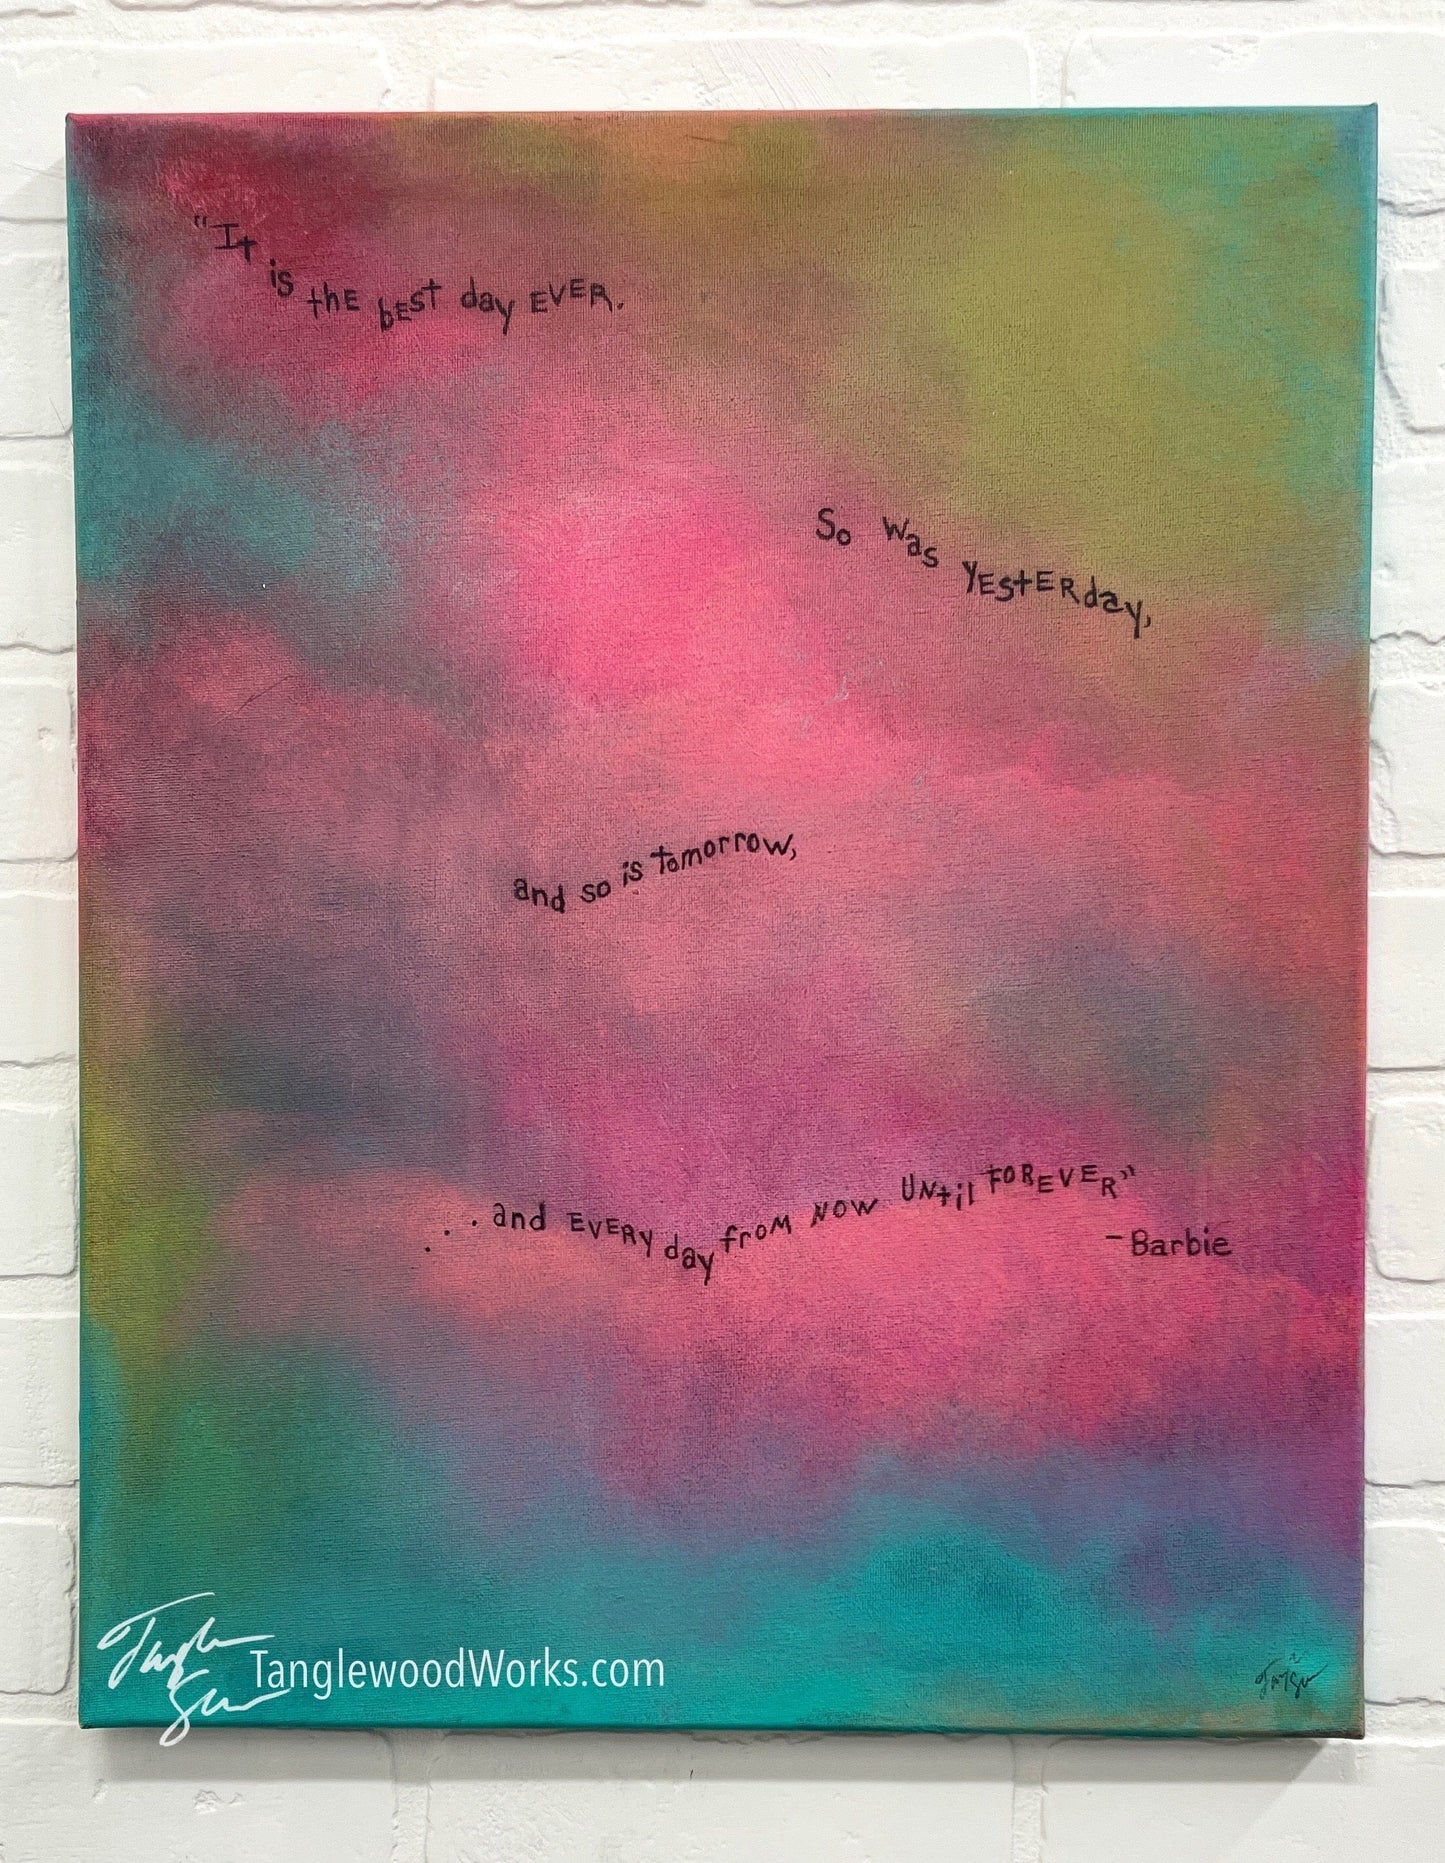 "It is the bEST day EVER.
So was YESTERday,
and so is tomorrow,
...and EVERY day from NOW UNtil FOREVER"
-Barbie
TanglewoodWorks.com